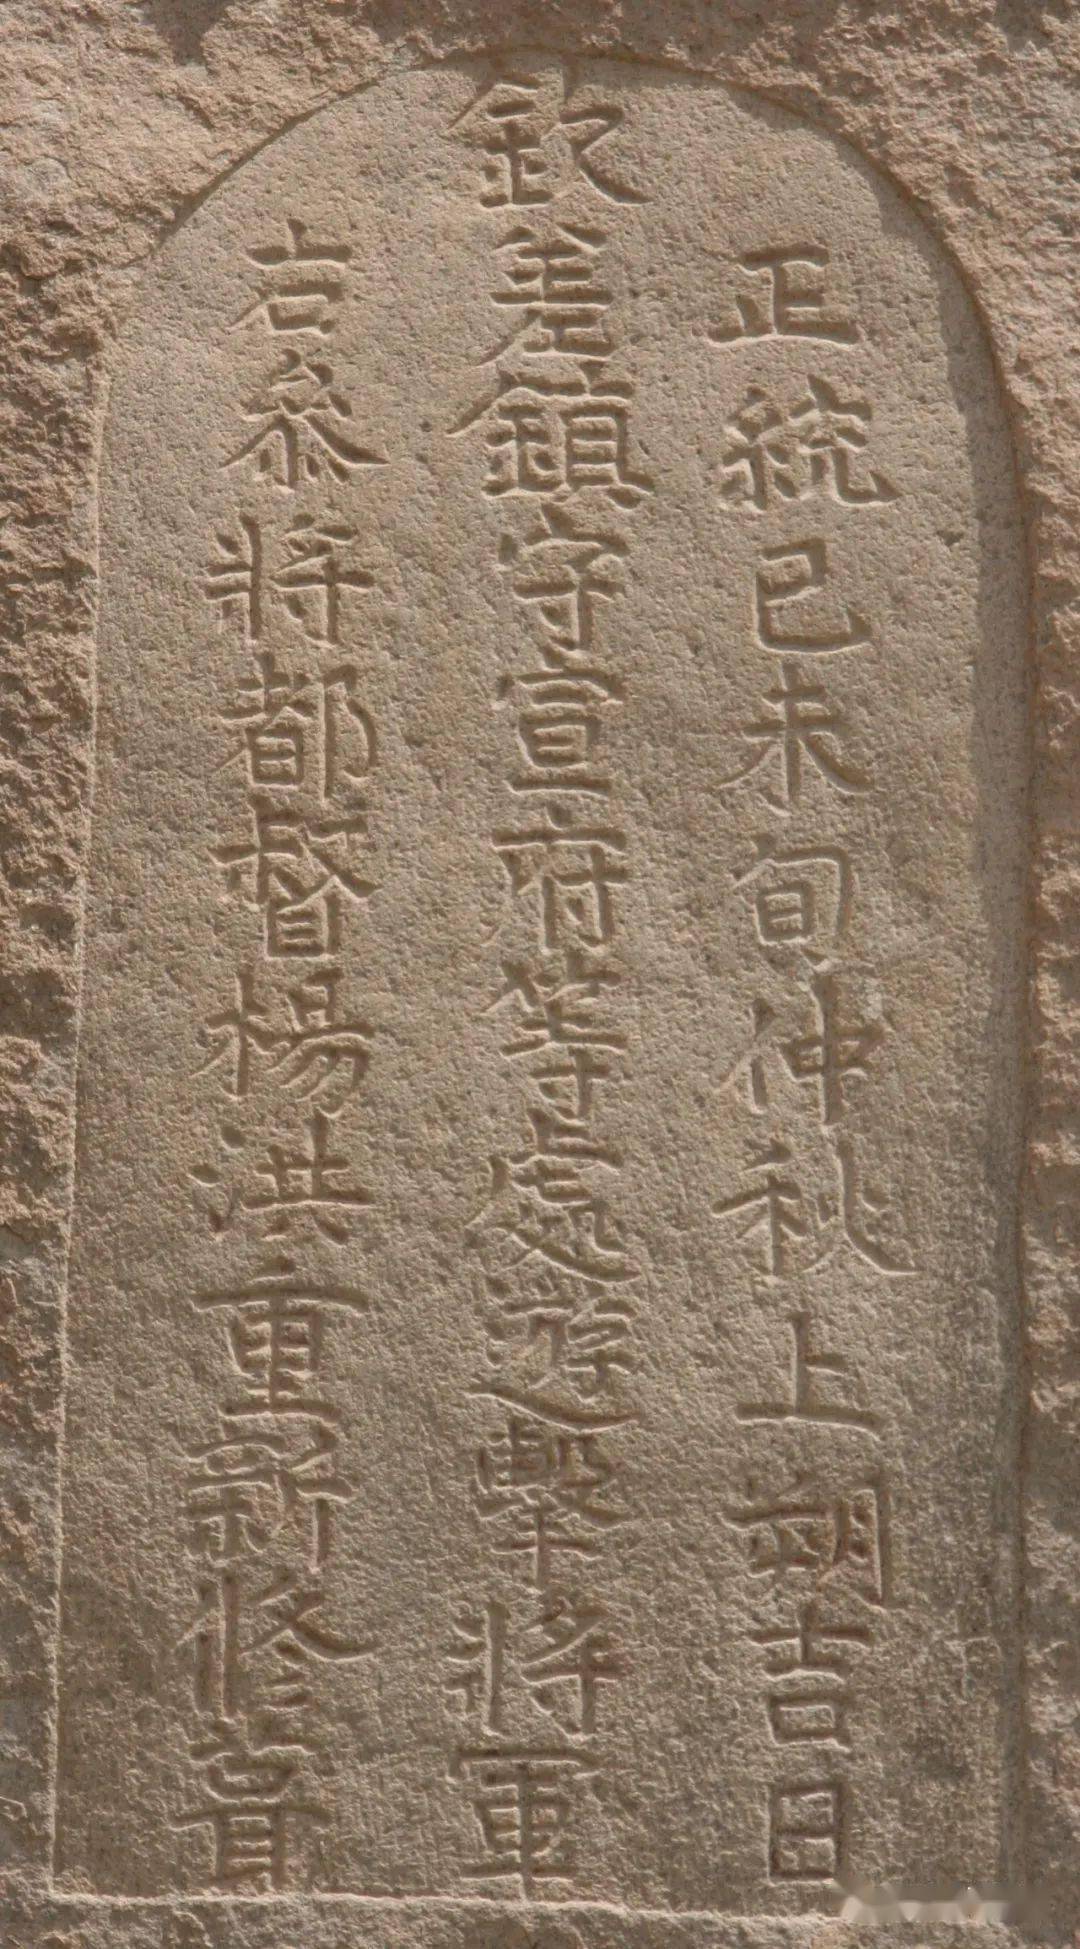 正統己未旬仲秋上朔吉日
欽差鎮守宣府等處遊擊將軍
右叅將都督楊洪重新修